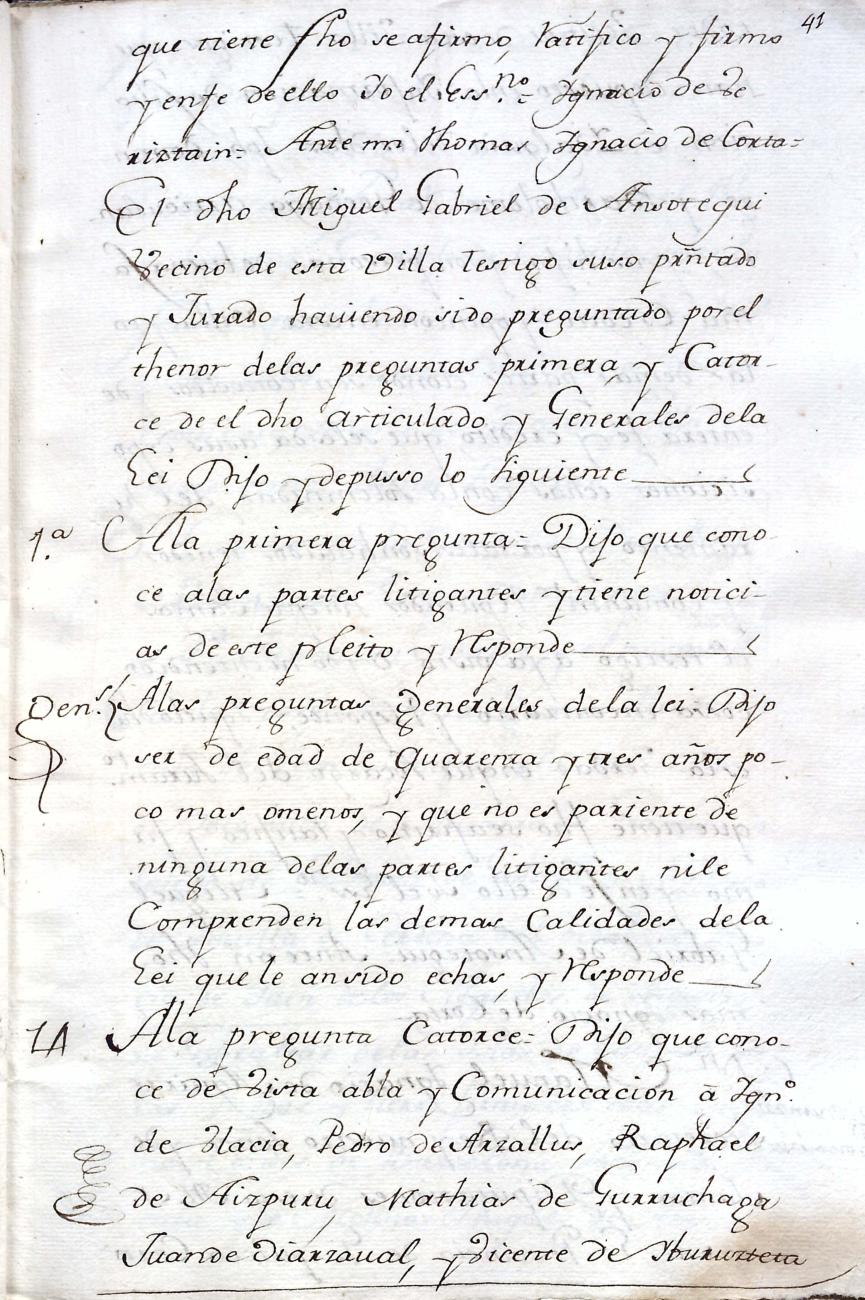 41
que tiene fho se afirmo, ratifico y firmo
y enfe de ello Yo el Ess.no = Ignacio de Be
riztain = Ante mi thomas Ignacio de Corta =
El dho Miguel Gabriel de Ansotegui
Vecino de esta Villa testigo suso prñtado
y Jurado haviendo sido preguntado por el
thenor delas preguntas primera, y Cator-
ce de el dho articulado y Generales dela
Lei Dijo y depusso lo siguiente
1.a Ala primera pregunta = Dijo que cono-
ce alas partes litigantes y tiene notici-
as de este pleito y responde
Gen.s Alas preguntas generales de la lei Dijo
ser de edad de Quarenta y tres años po-
co mas omenos, y que no es pariente de
ninguna delas partes litigantes nile
Comprenden las demas Calidades dela
Lei que le an sido echas, y responde
14 Ala pregunta Catorce = Dijo que cono-
ce de vista abla y Comunicacion â Ign.o
de Ulacia, Pedro de Arzallus, Raphael
de Aizpuru, Mathias de Gurruchaga
Juan de Diarzaval, y Vicente de Yburuzteta